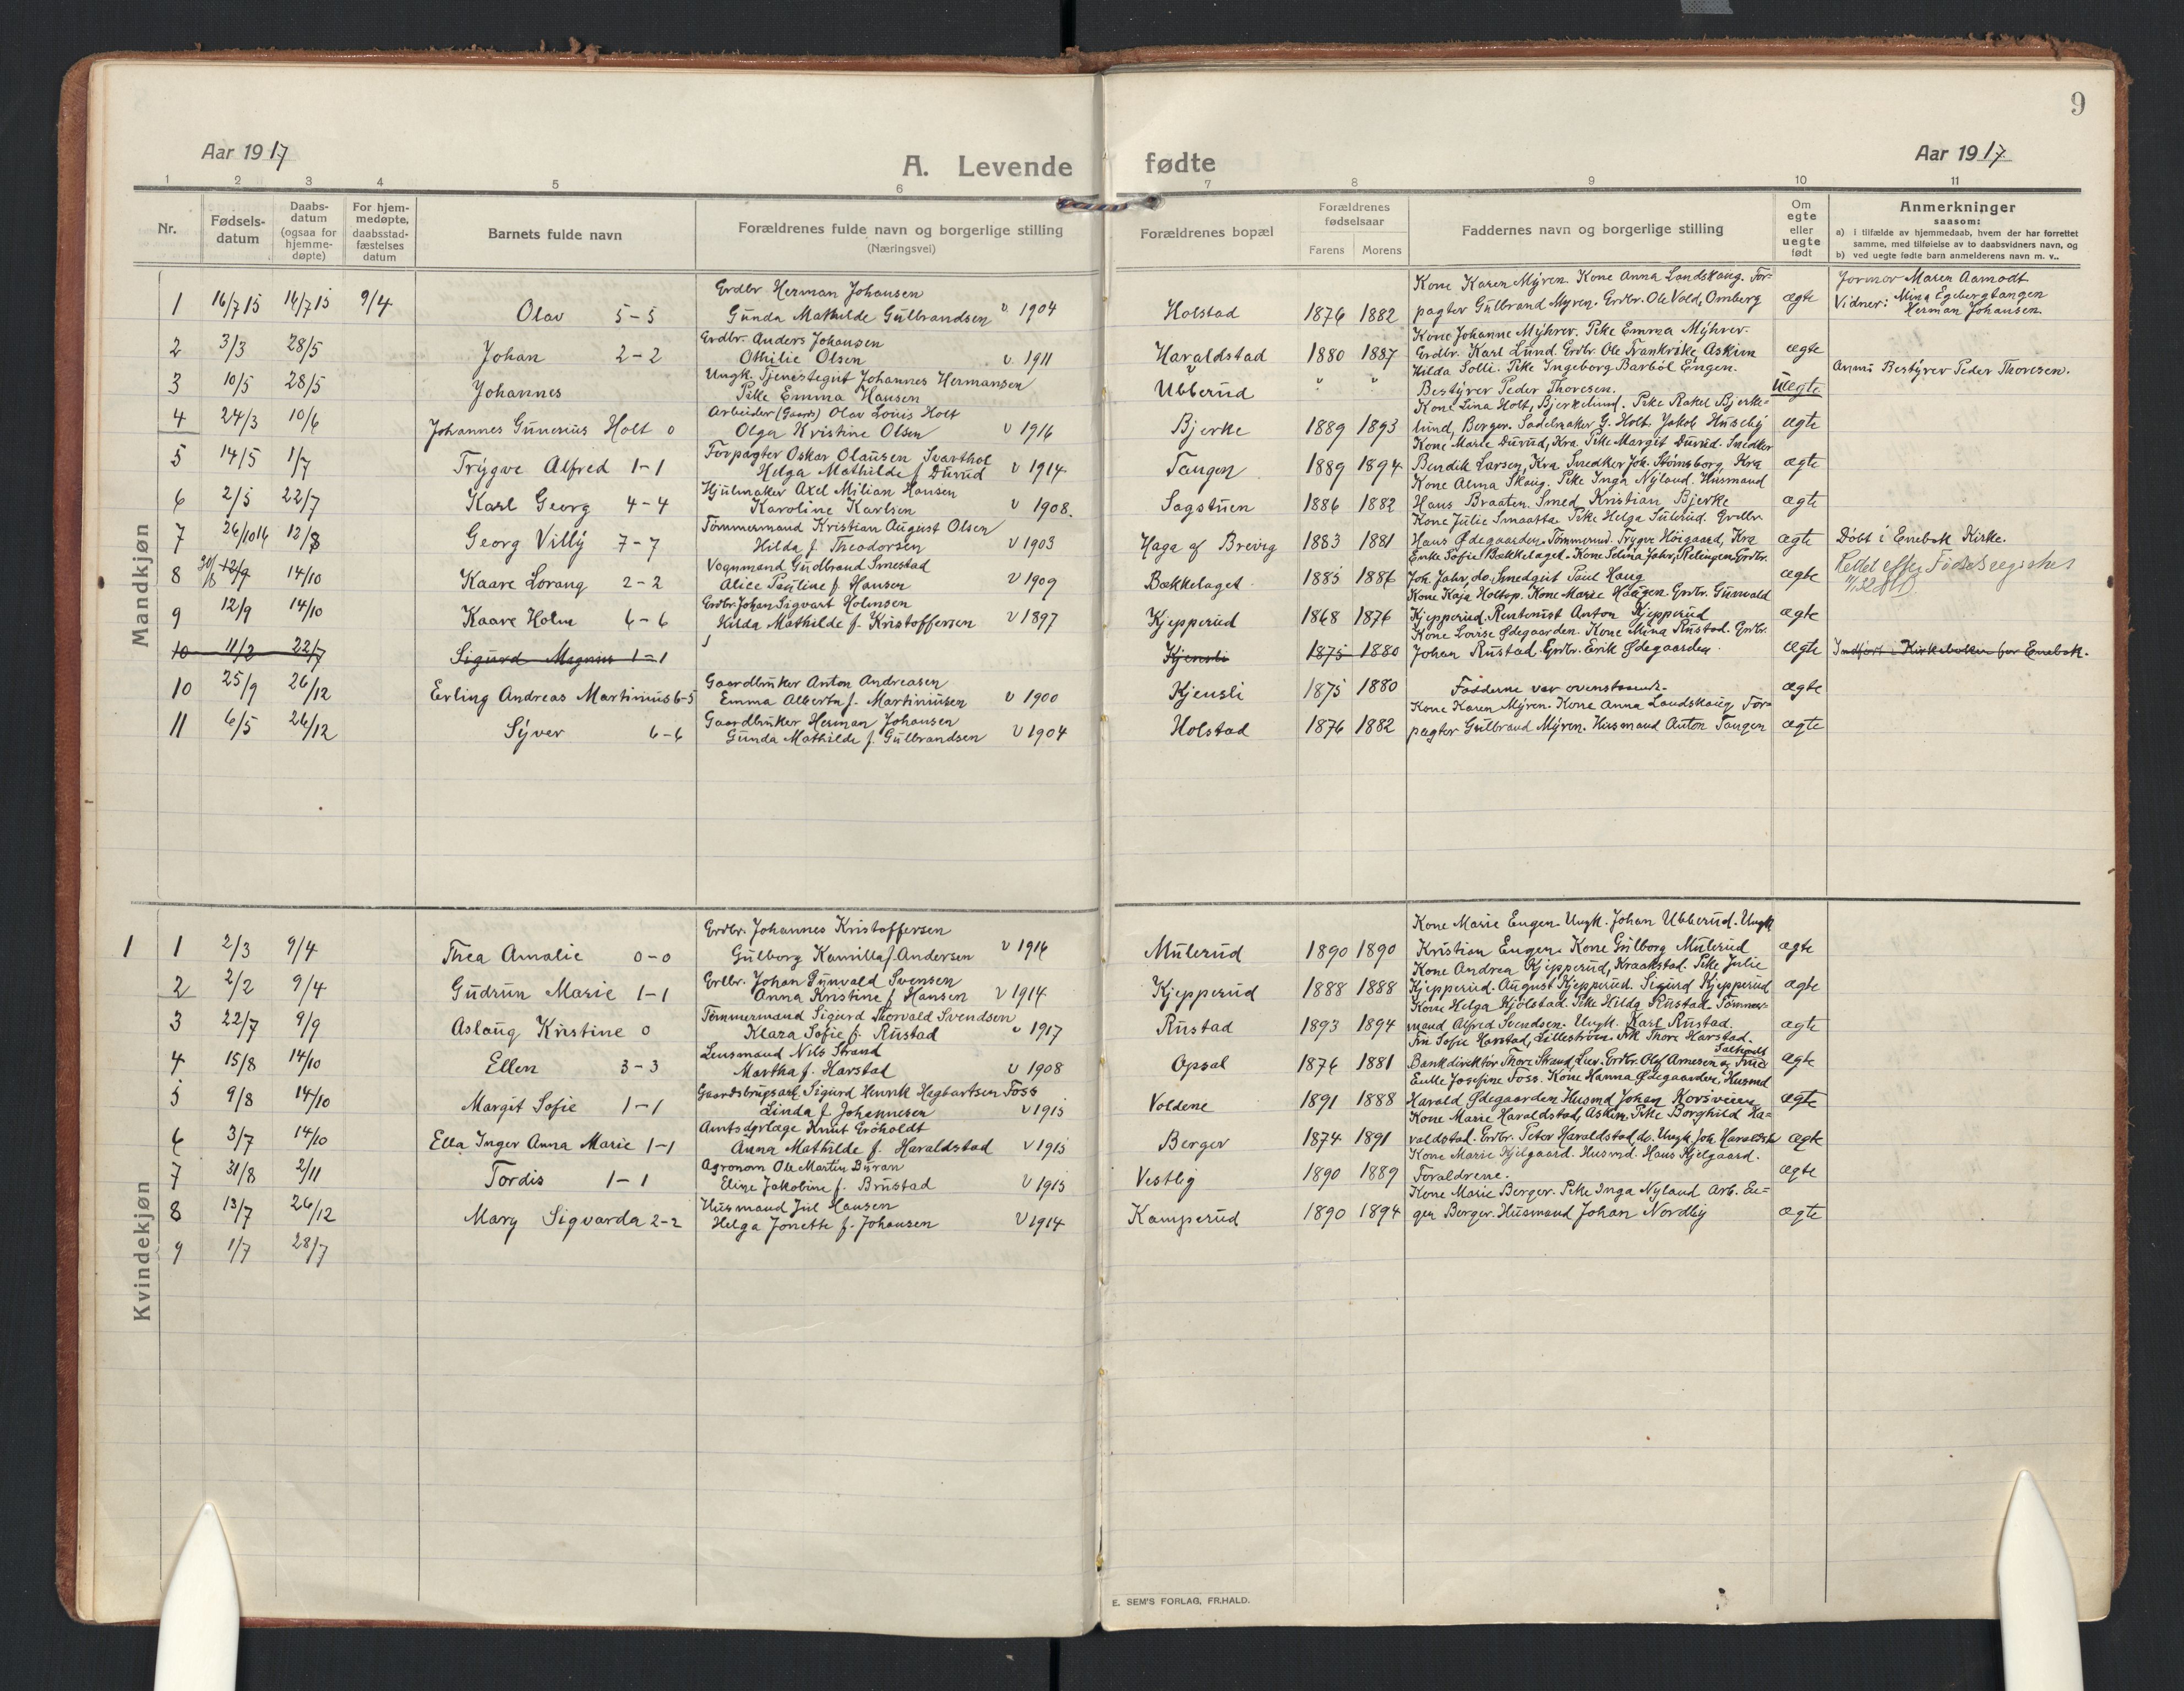 9
Aar 1917
A. Levende fødte
Aar 1917
1 2 3 4 5 6 7 8 9 10 11
Nr.
Fødsels-
datum
Daabs-
datum
(ogsaa for
hjemme-
døpte)
For hjem-
medøpte,
daabsstad-
fæstelses
datum
Barnets fulde navn
Forældrenes fulde navn og borgerlige stilling
(Næringsvei)
Forældrenes bopæl
Forældrenes
fødselsaar
Farens Morens
Faddernes navn og borgerlige stilling
Om
egte
eller
uegte
født
Anmerkninger
saasom:
a) i tilfælde av hjemmedaab, hvem der har forrettet
samme, med tilføielse av to daabsvidners navn, og
b) ved uegte fødte barn anmelderens navn m. v..
Mandkjøn
1 16/7 15 14/7 15 9/4 Olav 5-5
Grdbr. Herman Johansen
Gunda Mathilde Gulbrandsen v 1904
Holstad 1876 1882
Kone Karen Myren. Kone Anna Landskaug. For-
pagter Gulbrand Myren. Grdbr. Ole Vold, Omberg
ægte
Jormor Maren Aamodt
Vidner: Mina Egebergtangen
Herman Johansen.
2 3/3 28/5 Johan 2-2
Grdbr. Anders Johansen
Othilie Olsen v. 1911
Haraldstad 1880 1887
Kone Johanne Myhrer. Pike Emma Myhrer.
Grdbr. Karl Lund. Grdbr. Ole Frankrike, Askim
ægte
3 10/5 28/5 Johannes
Ungk. Tjenestegut Johannes Hermansen
Pike Emma Hansen
Ubberud " "
Hilda Solli. Pike Ingeborg Barból Engen.
Bestyrer Peder Thoresen.
uegte
Anm: Bestyrer Peder Thoresen.
4 24/3 10/6 Johannes Gunerius Holt 0
Arbeider (Gaard) Olav Louis Holt
Olga Kristine Olsen v 1916
Bjerke 1889 1893
Kone Lina Holt, Bjerkelund. Pike Rakel Bjerke-
lund, Berger. Sadelmaker G. Holt. Jakob Huseby
ægte
5 14/5 1/7 Trygve Alfred 1-1
Forpagter Oskar Olausen Svarthol
Helga Mathilde f. Durud v 1914
Tangen 1889 1894
Kone Marie Durud, Kra. Pike Margit Durud. Snedker
Bendik Larsen, Kra Snedker Joh. Stömsborg, Kra
ægte
6 2/5 22/7 Karl Georg 4-4
Hjulmaker Axel Milian Hansen
Karoline Karlsen v 1908.
Sagstuen 1886 1882
Kone Alma Skaug. Pike Inga Nyland. Husmand
Hans Braaten. Smed Kristian Bjerke
ægte
7 26/10 16 12/8 Georg Villy 7-7
Tømmermand Kristian August Olsen
Hilda f. Theodorsen v 1903
Haga af Brevig 1883 1881
Kone Julie Smaatta. Pike Helga Sulerud. Grdbr.
Hans Ødegaarden. Tømmermd. Trygve Höigaard, Kra
ægte
Døbt i Enebak Kirke.
8 30/8 12/9 14/10 Kaare Lorang 2-2
Vognmand Gudbrand Smestad
Alice Pauline f. Hansen v 1909
Bakkelaget 1885 1886
Enke Sofie Bakkelaget. Kone Selina Jahr, Rælingen. Grdbr.
Joh. Jahr, do. Smedgut Paul Haug
ægte
Rettet efter Fødselsregister
9 12/9 14/10 Kaare Holm 6-6
Grdbr. Johan Sigvart Holmsen
Hilda Mathilde f. Kristoffersen v 1897
Kjepperud 1868 1876
Kone Kaja Holtop. Kone Marie Haugen. Grdbr. Gunvald
Kjepperud. Rentenist Anton Kjepperud
ægte
10 11/2 22/7 Sigurd Magnus 1-1
Kjensli 1875 1880
Kone Lovise Ødegaarden. Kone Mina Rustad. Grdbr.
Johan Rustad. Grdbr. Erik Ødegaarden
ægte
Indført i Kirkeboken for Enebak.
10 25/9 26/12 Erling Andreas Martinius 6-5
Gaardbruker Anton Andreasen
Emma Alberta f. Martiniusen v 1900
Kjensli 1875 1880
Fadderne var ovenstaaende.
ægte
11 6/5 26/12 Syver 6-6
Gaardbruker Herman Johansen
Gunda Mathilde f. Gulbrandsen v 1904
Holstad 1876 1882
Kone Karen Myren. Kone Anna Landskaug. For-
pagter Gulbrand Myren. Husmand Anton Tangen
ægte
Kvindekjøn
1 1 2/3 9/4 Thea Amalie 0-0
Grdbr. Johannes Kristoffersen
Gulborg Kamilla f. Andersen v 1916
Mulerud 1890 1890
Kone Marie Engen. Ungk. Johan Ubberud. Ungk
Kristian Engen. Kone Gulborg Mulerud
ægte
2 2/2 9/4 Gudrun Marie 1-1
Grdbr. Johan Gunvald Svensen
Anna Kristine f. Hansen v 1914
Kjepperud 1888 1888
Kone Andrea Kjepperud, Kraakstad. Pike Julie
Kjepperud. August Kjepperud. Sigurd Kjepperud
ægte
3 22/7 9/9 Aslaug Kristine 0
Tømmermand Sigurd Thorvald Svendsen
Klara Sofie f. Rustad v 1917
Rustad 1893 1894
Kone Helga Kjölstad. Pike Hilda Rustad. Tømmer-
mand Alfred Svendsen. Ungk. Karl Rustad.
ægte
4 15/8 14/10 Ellen 3-3
Lensmand Nils Strand
Martha f. Harstad v 1908
Opsal 1876 1881
Fru Sofie Harstad, Lillestrøm. Frk Thora Harstad.
Bankdirektør Thore Strand, Lier. Grdbr. Olaf Arnesen og Frue
ægte
5 9/8 14/10 Margit Sofie 1-1
Gaardsbrugsarb. Sigurd Henrik Hagbartsen Foss
Linda f. Johannesen v 1915
Voldene 1891 1888
Enke Josefine Foss. Kone Hanna Ødegaarden. Husmd
Harald Ødegaarden Husmd Johan Korsveien
ægte
6 3/7 14/10 Ella Inger Anna Marie 1-1
Amtsdyrlæge Knut Gröholdt
Anna Mathilde f. Haraldstad v 1915
Berger 1874 1891
Kone Marie Haraldstad, Askim. Pike Borghild Ha-
raldstad. Grdbr. Peter Haraldstad, do. Ungk. Joh. Haraldstad
ægte
7 31/8 2/11 Tordis 1-1
Agronom Ole Martin Buran
Eline Jakobine f. Brustad v 1915
Vestby 1890 1889
Kone Marie Kjelgaard. Husmd. Hans Kjelgaard.
Forældrene.
ægte
8 13/7 26/12 Mary Sigvarda 2-2
Husmand Jul Hansen
Helga Jonette f. Johansen v 1914
Kamperud 1890 1894
Kone Marie Berger. Pike Inga Nyland Arb. Eu-
gen Berger. Husmand Johan Nordby
ægte
9 1/7 28/7
E. SEM'S FORLAG, FR.HALD.